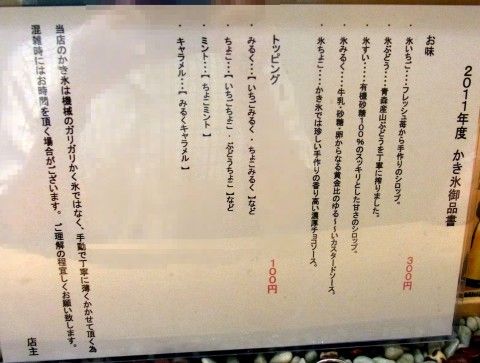 2011年度 かき氷御品書
お味
・氷いちご・・・・フレッシュ苺から手作りのシロップ。 300円
・氷ぶどう・・・・青森産山ぶどうを丁寧に搾りました。
・氷すい・・・・有機砂糖100%のスッキリとした甘さのシロップ。
・氷みるく・・・・牛乳・砂糖・卵からなる黄金比のゆる～～いカスタードソース。
・氷ちょこ・・・・かき氷では珍しい手作りの香り高い濃厚チョコソース。
トッピング 100円
・みるく・・・【いちごみるく・ちょこみるく】など
・ちょこ・・・【いちごちょこ・ぶどうちょこ】など
・ミント・・・【ちょこミント】
・キャラメル・・・【みるくキャラメル】
当店のかき氷は機械のガリガリかく氷ではなく、手動で丁寧に薄くかかせて頂く為
混雑時にはお時間を頂く場合がございます。ご理解の程宜しくお願い致します。
店主